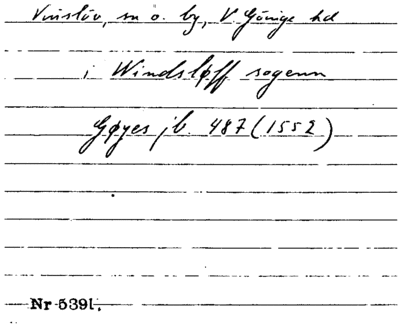 Vinslöv, sn o. by, V. Göinge hd
i Windsløff sogenn
Gøyes jb. 487 (1552)
Nr 5391.